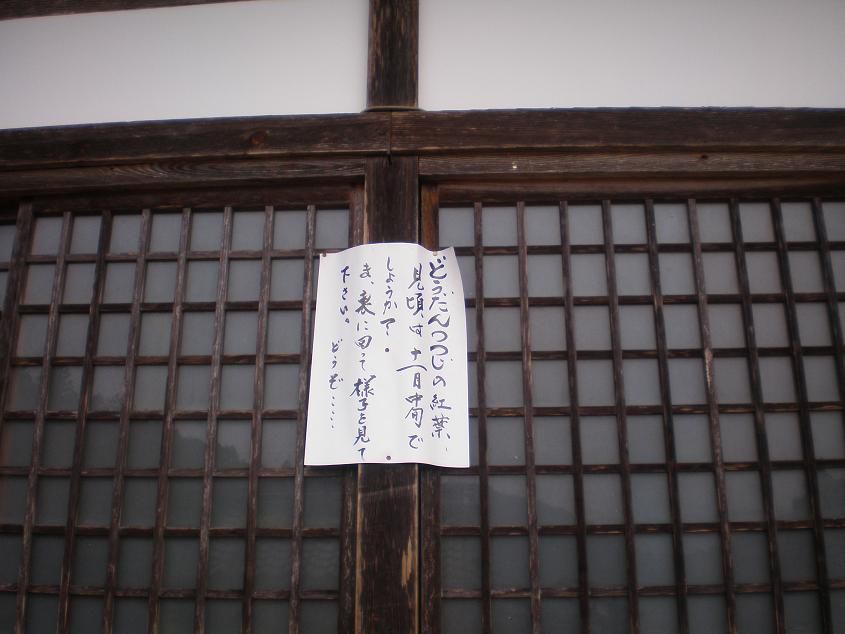 どうだんつつじの紅葉、
見頃は十一月中旬で
しょうか?。
ま、裏に回って様子を見て
下さい。
どうぞ……